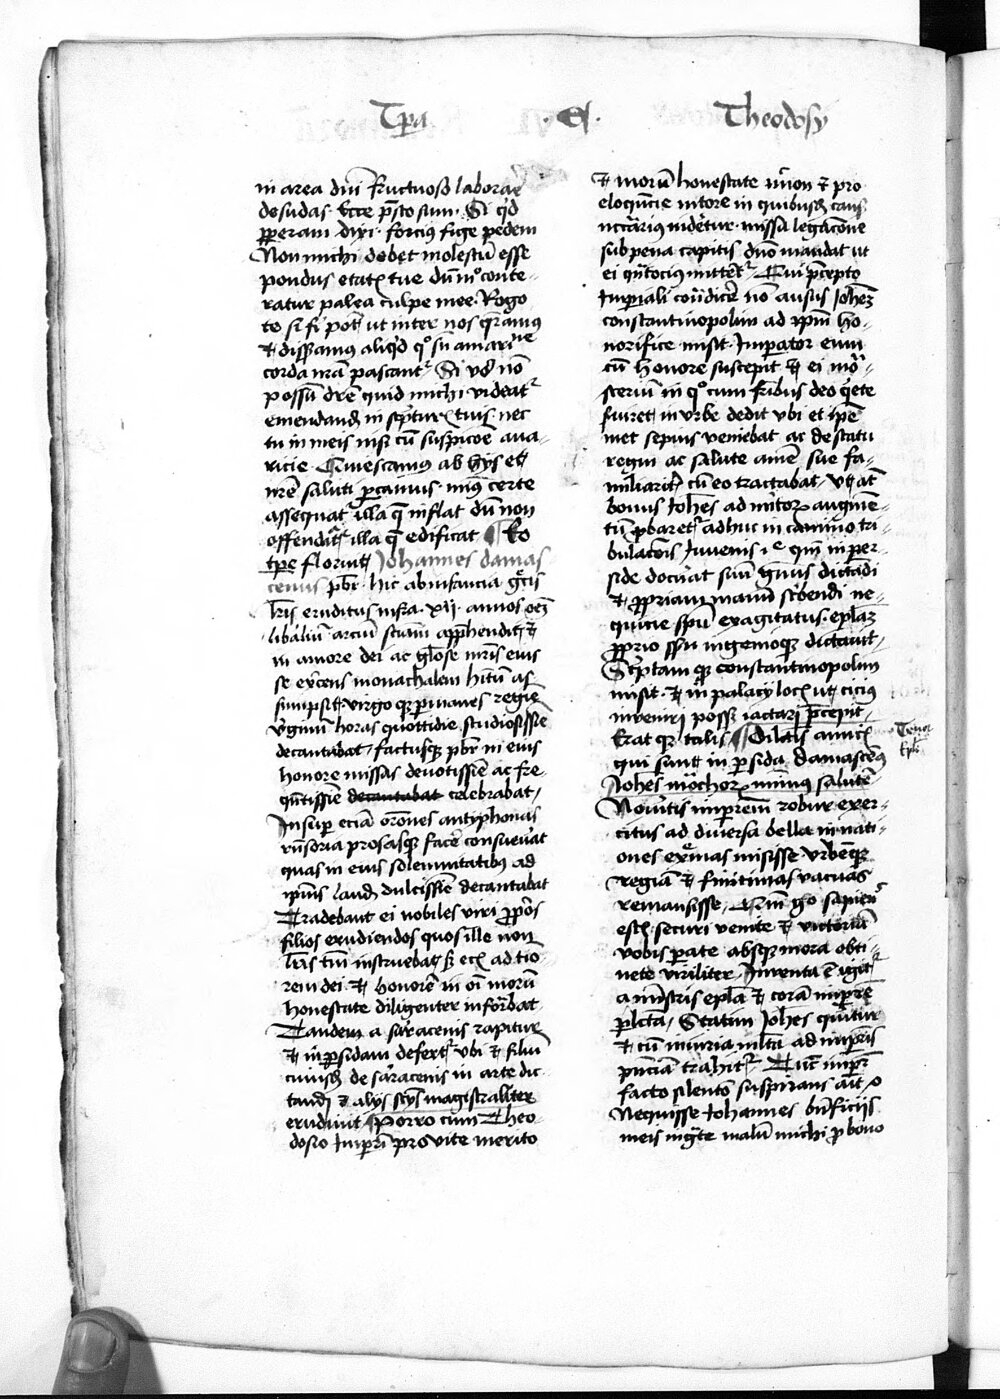 Tpa · Et · Theodosy
in area dni fructuose laborare
desudas. Ecce psto sum. Si qd
pperam dixi forcius fige pedem
Non michi debet molestu esse
pondus etatis tue du mo conte-
ratur palea culpe mee. Rogo
te si fi pot ut inter nos qramus
et disscamus aliqd qo sn amaritudine
corda nra pascant. Si vo no
possu dre quid michi videat
emendand in scpturis tuis nec
tu in meis nisi cu suspicoe ava-
ricie. Quiescamus ab hys et
nre saluti pcamus. mius certe
assequat illa q inflat du non
offendat illa q edificat Eo
tpe floruit Johannes damas
cenus pbr. hic ab infancia grecis
lris eruditus infra xii annos oez
libaliu arciu sciam apphendit et
in amore dei ac gloose mris eius
se exercens monachalem hitum as-
sumpsit. virgo qz pmanes regie
virginu horas quottidie studiosissie
decantabat, factusqz pbr in eius
honore missas devotissie ac fre
quetissie decantabat celebrabat,
Insup ecia orones antyphonas
rnsoria prosasqz face consuevat
quas in eius solemnitatibus ad
ipius laude dulcissie decantabat
Tradebant ei nobiles viri ppos
filios erudiendos quos ille non
lris tm instruebat, s eci ad tio-
rem dei et honore in oi moru
honestate diligenter informabat
Tandem a saracenis rapitur
et in psidam defert ubi et filiu
cuiusd de saracenis in arte dic
tandi et alys scys magistraliter
erudivit Porro cum Theo-
dosio Impri pro vite merito
et moru honestate nron et pro
eloquncie nitore in quibusd causis
nccarius videtur. missa legacone
sub pena capitis duo mandat ut
ei quatocius mittet. Cui pcepto
Impiali codice no ausus Johez
constantinopolim ad ipm ho-
norifice misit. Imperator eum
cu honore suscepit et ei mo-
steriu in qo cum fribus deo qete
fviret in urbe dedit ubi et ipe
met sepius veniebat ac de statu
regni ac salute anime sue fa-
miliarit cu eo tractabat, ut at
bonus Johes ad mitor augmen-
tu pbaret adhuc in camino tri-
bulacois Juvenis ie que in per-
side docuat suu genus dictadi
et ppriam manu scbendi ne-
quicie spu exagitatus epla
pprio sui ingenioqz dictavit,
Scptam qz constantinopolim
misit et in palacy loc ut cicius
inveniri poss iactari pcepit,
Erat qz talis Dilcis amicis
qui sunt in psida damascenus
Johes mochor minimus salute
Novitis impreem robur exer-
citus ad diversa bella in nati-
ones extmas misisse urbemqz
regia et finitimas vacuas
remansisse. Cum go sapien
estis securi venite et victoria
vobis pate absqz mora obti-
nete viriliter, Inventa e igit
a mistris epla et cora impre
plcta, Statim Johes queritur
et cu iniuria mlta ad impris
pnciam trahit. Tuc impr
facto silento suspirans ait, o
Nequisse Johannes bnficiis
meis ingte malu michi p bono
Tenor
Epl